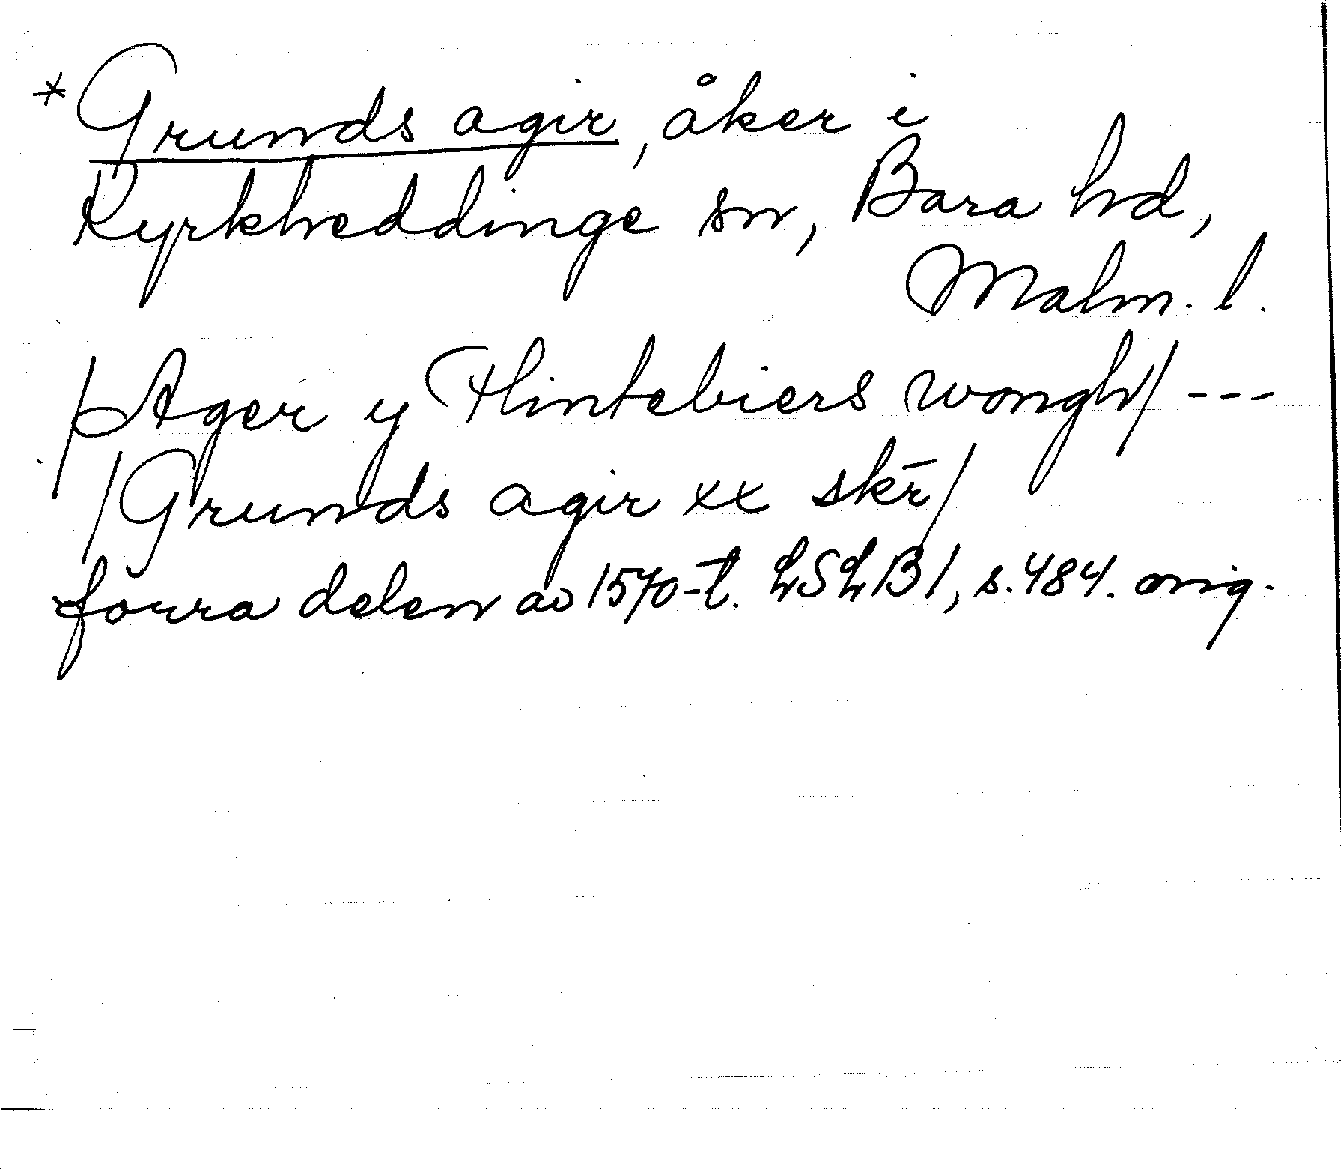 *Grunds agir, åker i
Kyrkheddinge sn, Bara hd,
Malm. l.
/Ager y Flintebiers wongh/ ---
/Grunds agir xx skr̄/
förra delen av 1570-t. LSLB1, s. 484. orig.